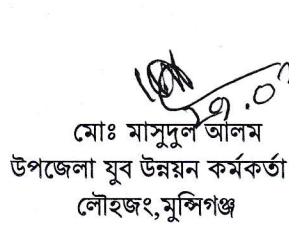 মোঃ মাসুদুল আলম
উপজেলা যুব উন্নয়ন কর্মকর্তা
লৌহজং,মুন্সিগঞ্জ